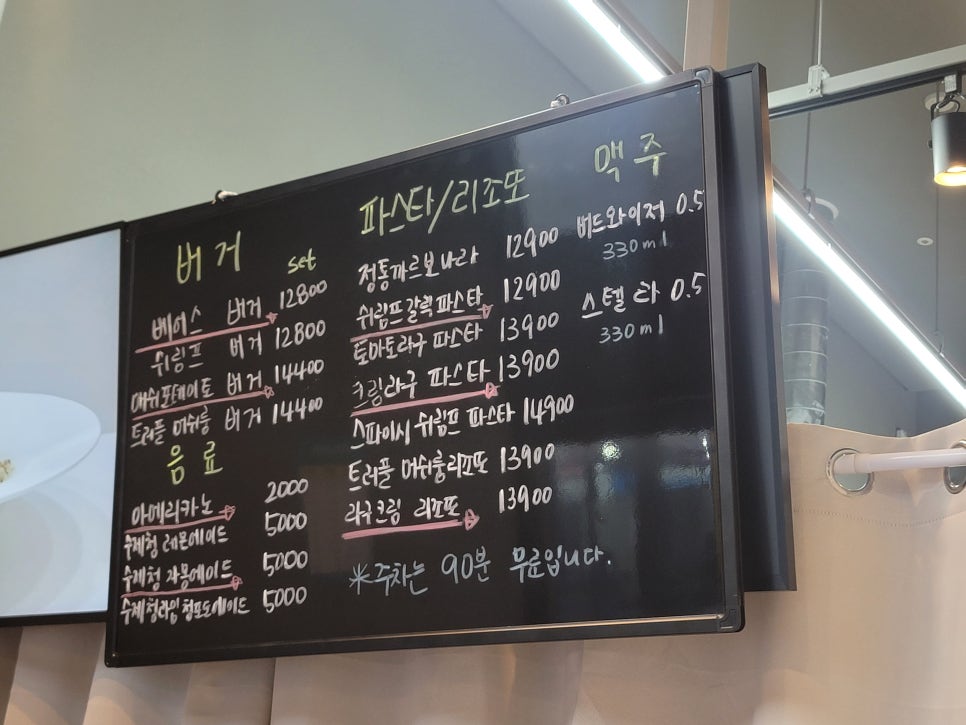 버거 set
베이스 버거 12800
쉬림프 버거 12800
매쉬포테이토 버거 14400
트러플 머쉬룸 버거 14400
음료
아메리카노 2000
수제청 레몬에이드 5000
수제청 자몽에이드 5000
수제청라임청포도에이드 5000
파스타/리조또
정통까르보나라 12900
쉬림프갈릭파스타 12900
토마토라구 파스타 13900
크림라구 파스타 13900
스파이시 쉬림프 파스타 14900
트러플 머쉬룸리조또 13900
라구크림 리조또 13900
※주차는 90분 무료입니다.
맥주
버드와이저 0.5
330ml
스텔라 0.5
330ml